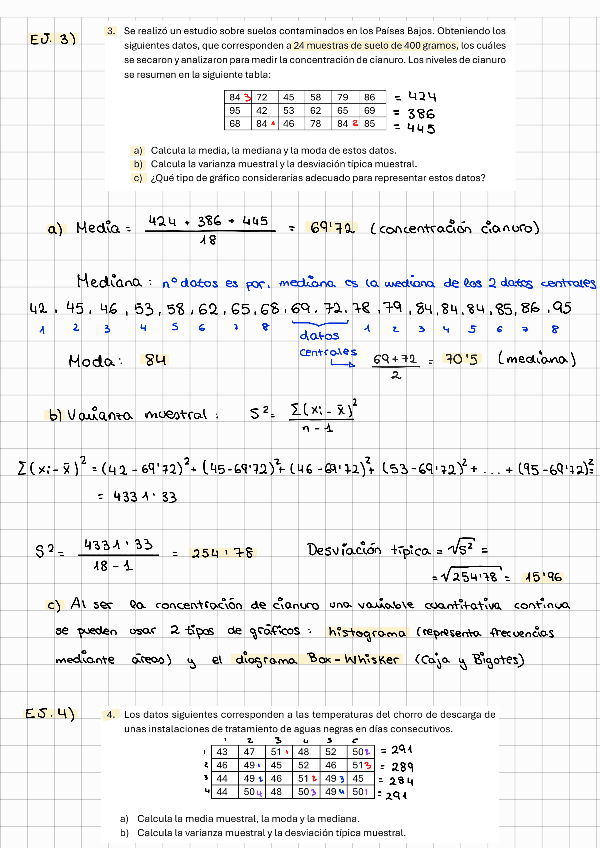 EJ. 3)
3. Se realizó un estudio sobre suelos contaminados en los Países Bajos. Obteniendo los
siguientes datos, que corresponden a 24 muestras de suelo de 400 gramos, los cuáles
se secaron y analizaron para medir la concentración de cianuro. Los niveles de cianuro
se resumen en la siguiente tabla:
84 3 72 45 58 79 86 = 424
95 42 53 62 65 69 = 386
68 84 1 46 78 84 2 85 = 445
a) Calcula la media, la mediana y la moda de estos datos.
b) Calcula la varianza muestral y la desviación típica muestral.
c) ¿Qué tipo de gráfico considerarías adecuado para representar estos datos?
a) Media = (424 + 386 + 445) / 18 = 69'72 (concentración cianuro)
Mediana : nº datos es par, mediana es la mediana de los 2 datos centrales
42, 45, 46, 53, 58, 62, 65, 68, 69, 72, 78, 79, 84, 84, 84, 85, 86, 95
1 2 3 4 5 6 7 8 1 2 3 4 5 6 7 8
datos
centrales
Moda: 84 (69+72) / 2 = 70'5 (mediana)
b) Varianza muestral : S² = Σ(xi - x̄)² / (n - 1)
Σ(xi - x̄)² = (42 - 69'72)² + (45 - 69'72)² + (46 - 69'72)² + (53 - 69'72)² + ... + (95 - 69'72)² =
= 4331'33
S² = 4331'33 / (18 - 1) = 254'78 Desviación típica = √S² =
= √254'78 = 15'96
c) Al ser la concentración de cianuro una variable cuantitativa continua
se pueden usar 2 tipos de gráficos : histograma (representa frecuencias
mediante áreas) y el diagrama Box-Whisker (Caja y Bigotes)
EJ. 4)
4. Los datos siguientes corresponden a las temperaturas del chorro de descarga de
unas instalaciones de tratamiento de aguas negras en días consecutivos.
1 2 3 4 5 6
1 43 47 51 1 48 52 50 2 = 291
2 46 49 1 45 52 46 51 3 = 289
3 44 49 2 46 51 2 49 3 45 = 284
4 44 50 4 48 50 3 49 4 50 1 = 291
a) Calcula la media muestral, la moda y la mediana.
b) Calcula la varianza muestral y la desviación típica muestral.